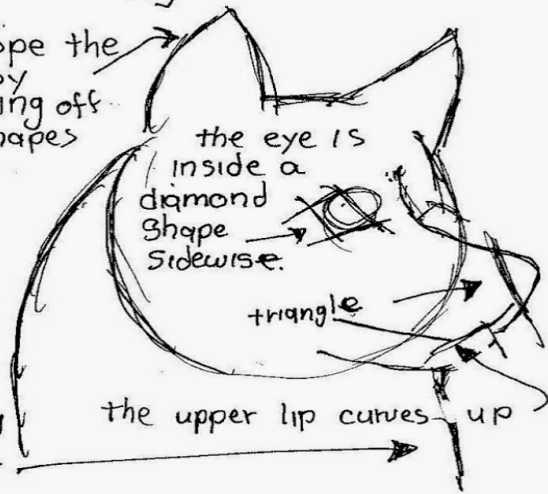 the
off
the eye is
inside a
diamond
shape
sidewise.
triangle
the upper lip curves up